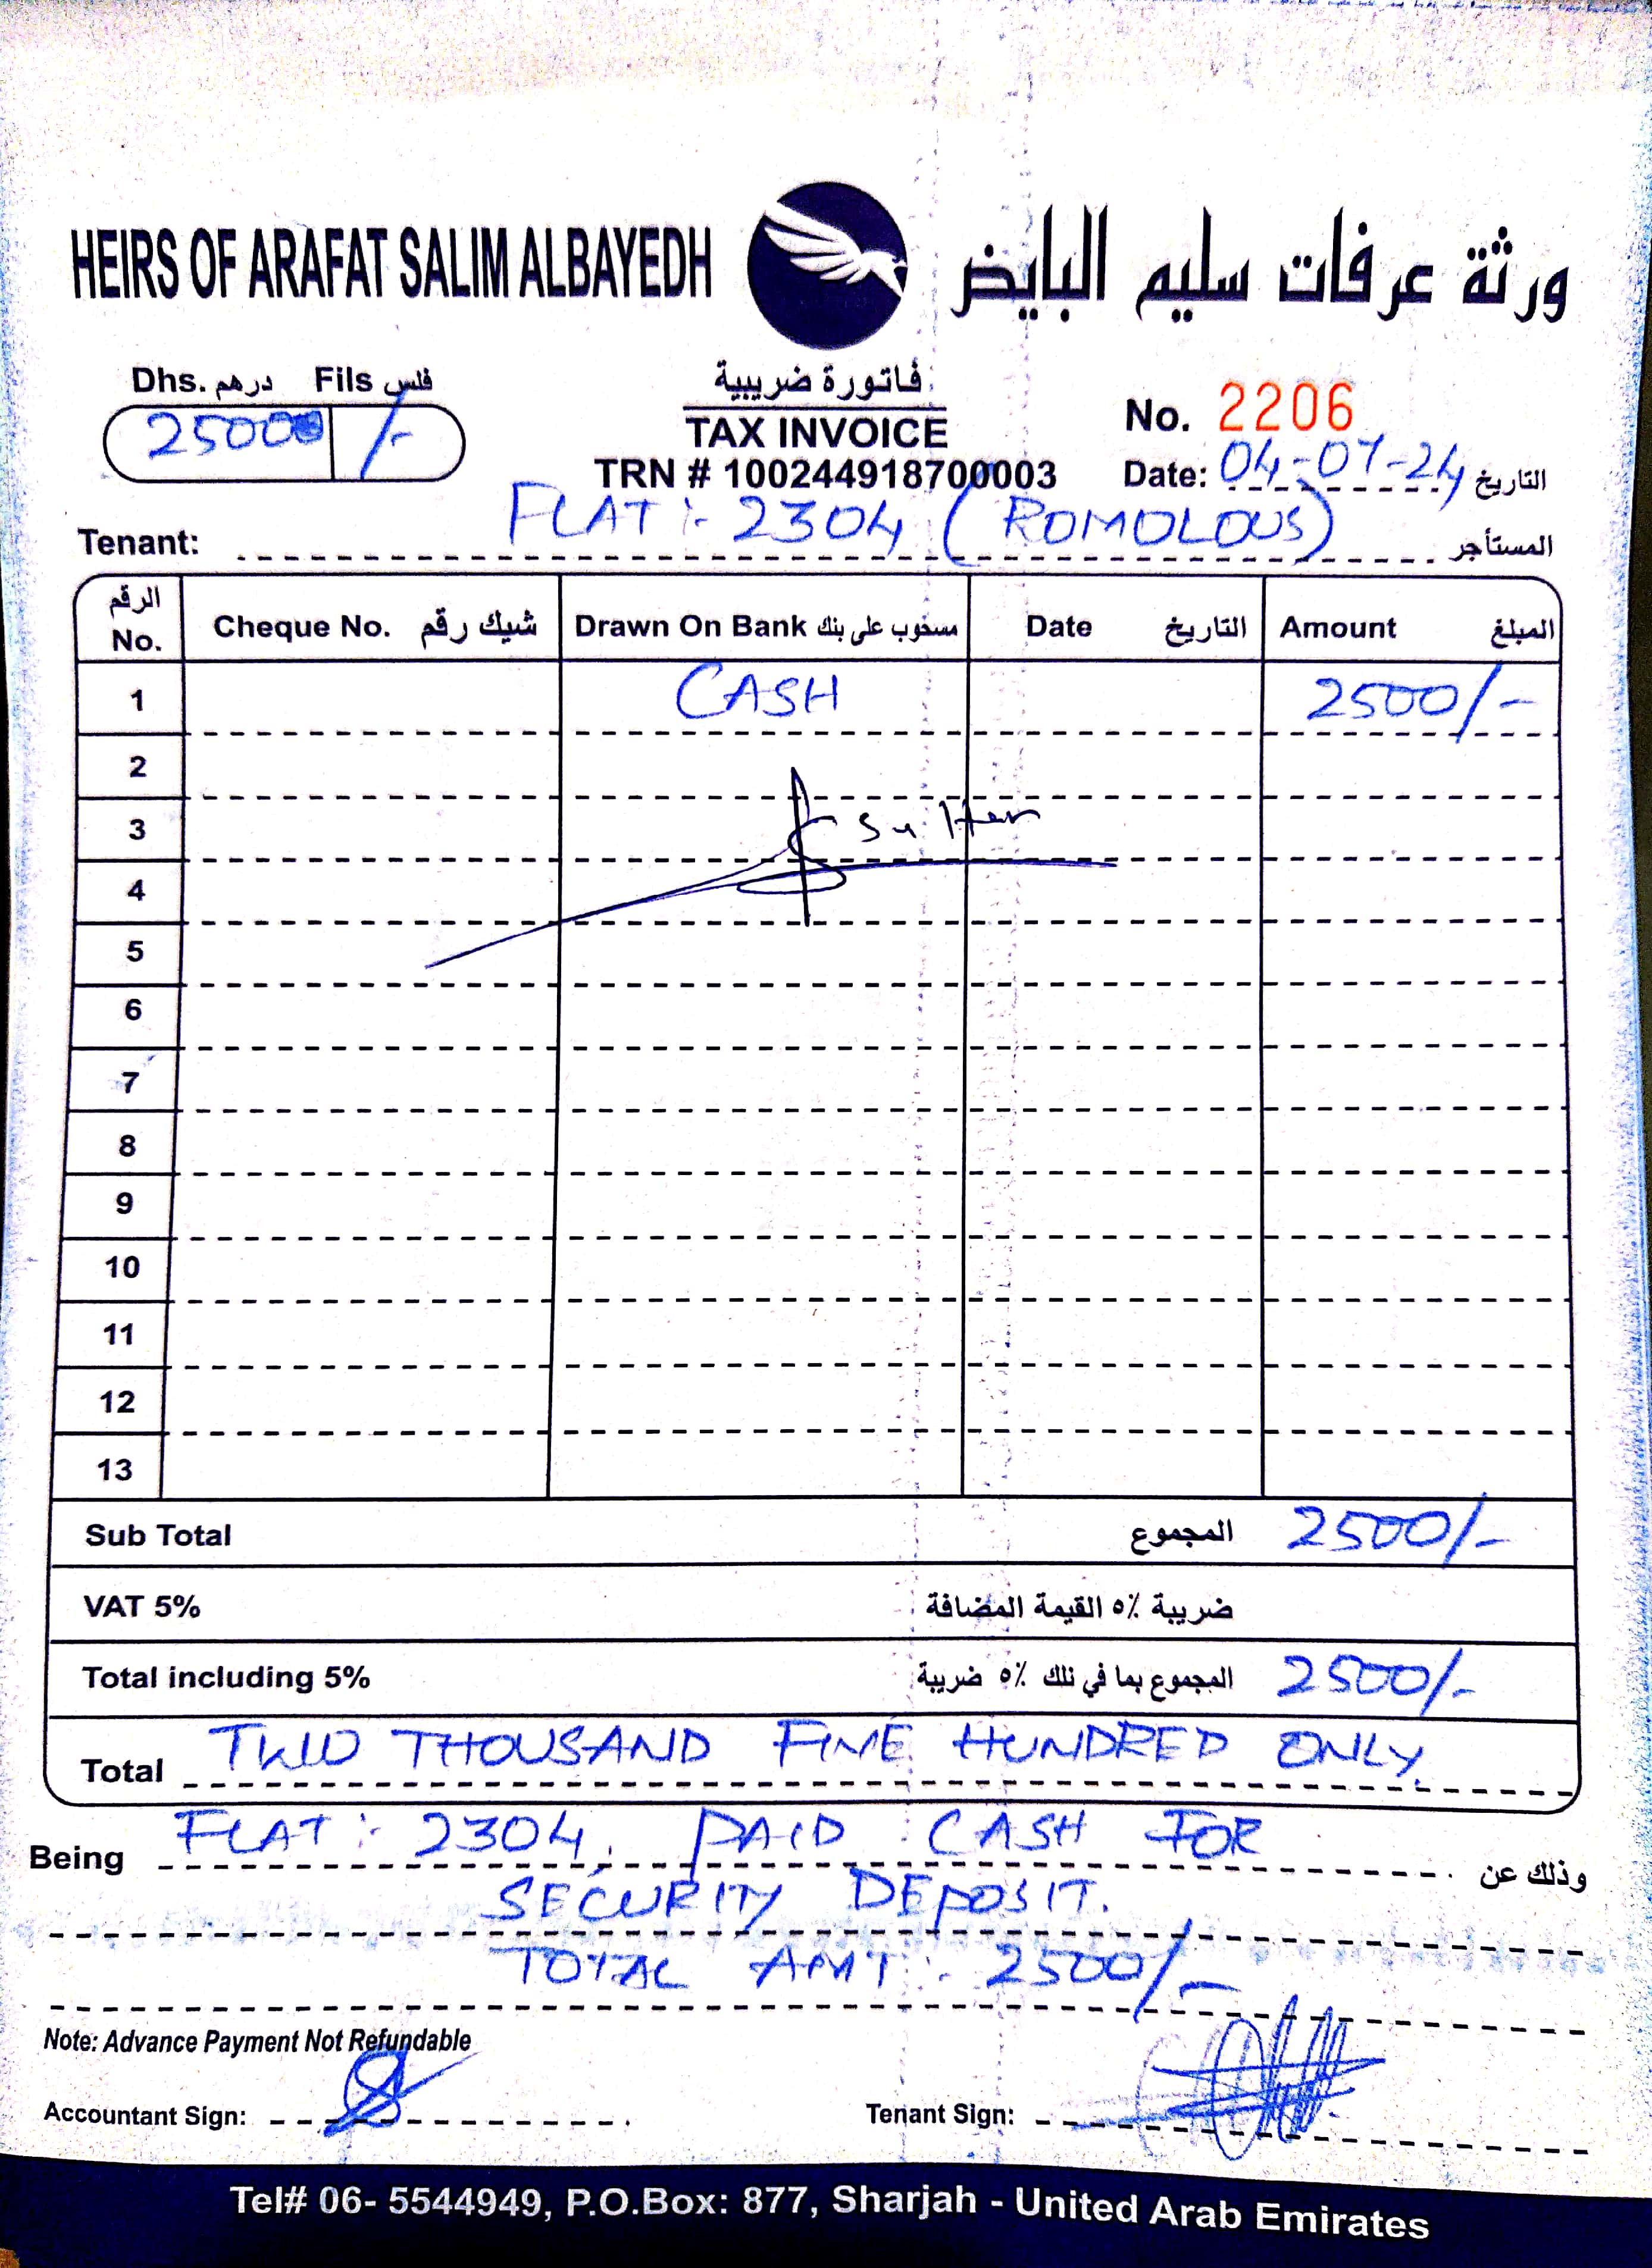 HEIRS OF ARAFAT SALIM ALBAYEDH
ورثة عرفات سليم البايض
Dhs. درهم Fils فلس
2500 /-
فاتورة ضريبية
TAX INVOICE
TRN # 100244918700003
No. 2206
Date: 04-07-24 التاريخ
Tenant: FLAT :- 2304 (ROMOLOUS) المستأجر
الرقم No. Cheque No. شيك رقم Drawn On Bank مسحوب على بنك Date التاريخ Amount المبلغ
1 CASH 2500/-
2
3
4
5
6
7
8
9
10
11
12
13
Sub Total المجموع 2500/-
VAT 5% ضريبة ٥٪ القيمة المضافة
Total including 5% المجموع بما في ذلك ٥٪ ضريبة 2500/-
Total TWO THOUSAND FIVE HUNDRED ONLY.
Being FLAT :- 2304, PAID CASH FOR وذلك عن
SECURITY DEPOSIT.
TOTAL AMT :- 2500/-
Note: Advance Payment Not Refundable
Accountant Sign:
Tenant Sign:
Tel# 06- 5544949, P.O.Box: 877, Sharjah - United Arab Emirates